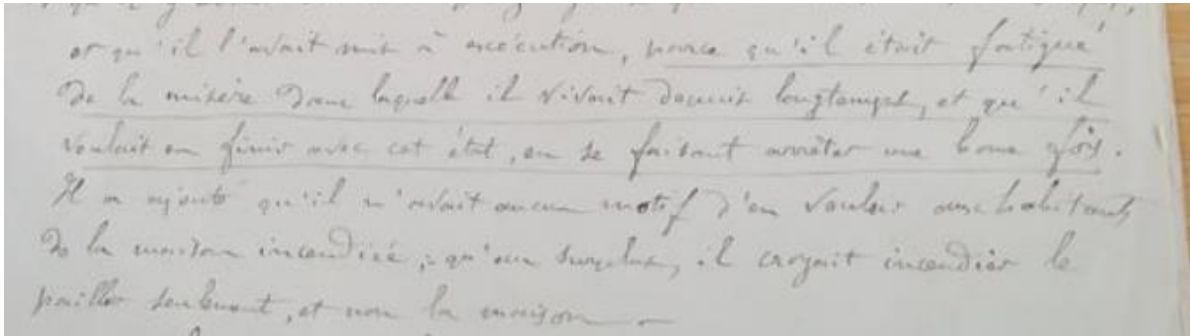 et qu'il l'avait mis à exécution, parce qu'il était fatigué
de la misère dans laquelle il vivait depuis longtemps, et qu'il
voulait en finir avec cet état, en se faisant arrêter une bonne fois.
Il a ajouté qu'il n'avait aucun motif d'en vouloir aux habitants
de la maison incendiée, qu'au surplus, il croyait incendier le
pailler seulement, et non la maison —